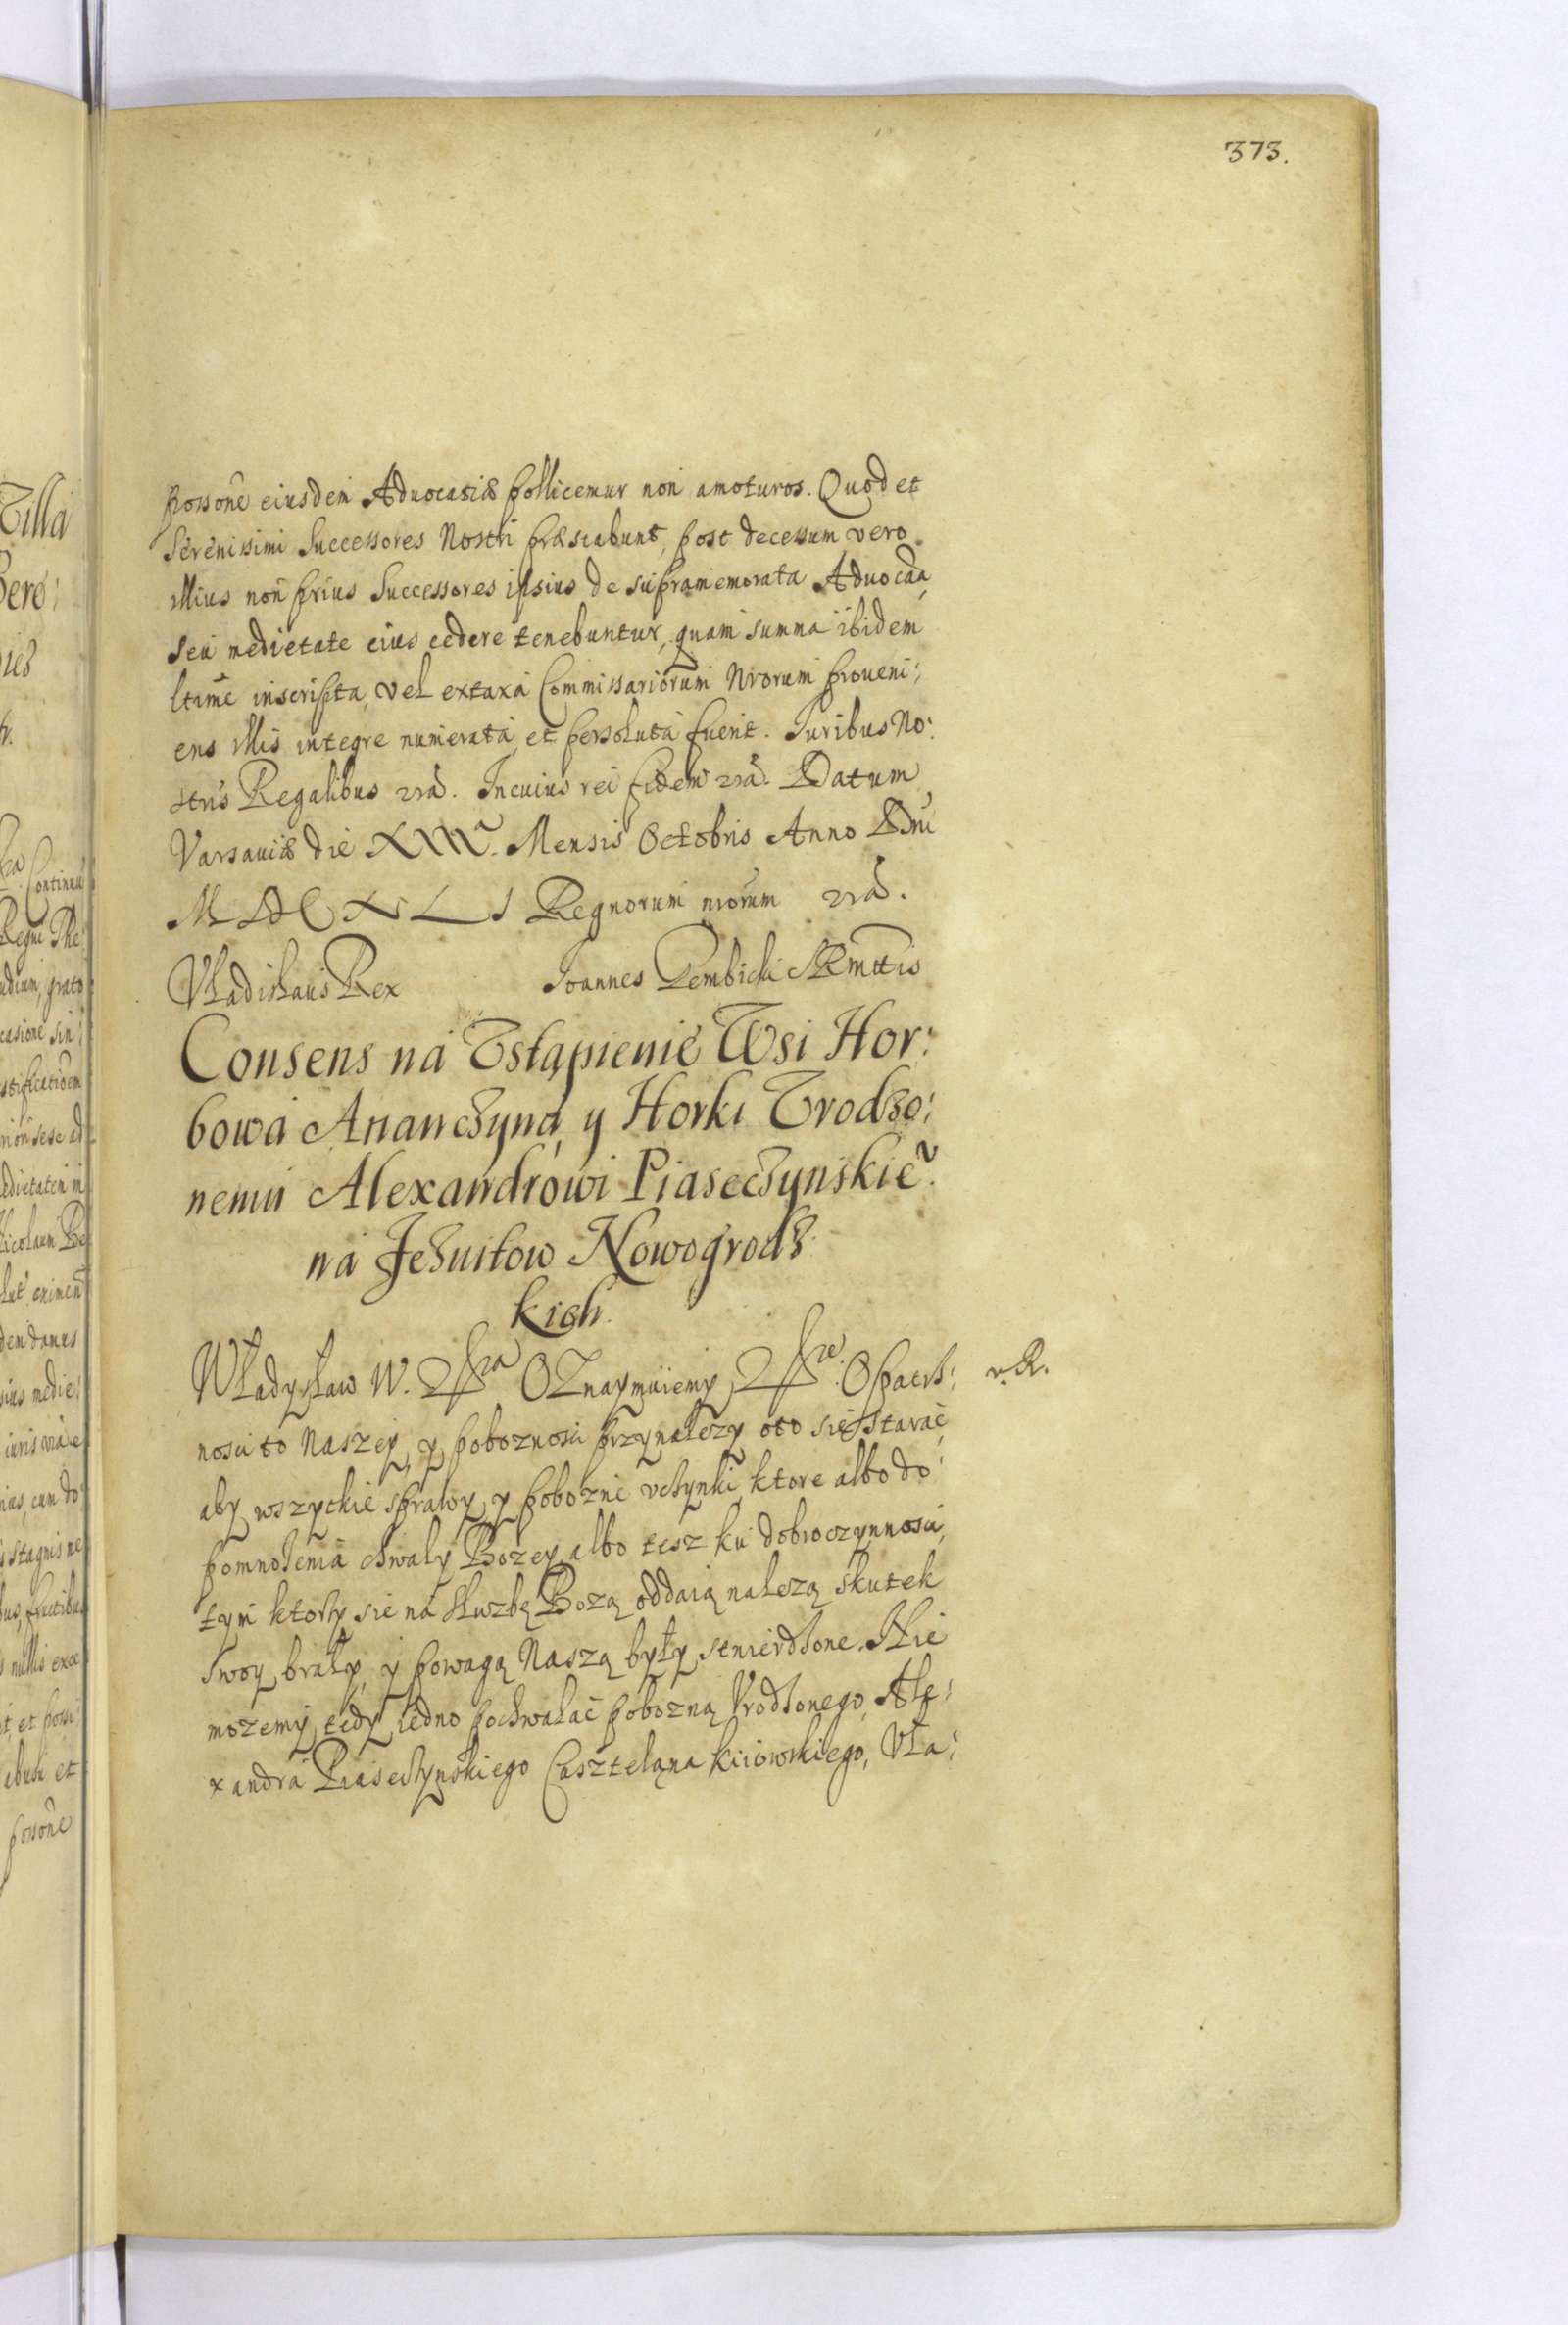 373.
possone eiusdem Advocatiæ pollicemur non amoturos. Quod et
Serenissimi Successores Nostri præstabunt, post decessum vero
illius non prius Successores ipsius de supramemorata Advocãa,
seu medietate eius cedere tenebuntur, quam summa ibidem
ltime inscripta, vel extaxa Commissariorum Nrorum proveni:
ens illis integre numerata, et persoluta fuerit. Juribus No:
stris Regalibus Incuius rei fidem Datum
Varsaviæ die Mensis Octobris Anno Dni
MDCXLI Regnorum nrorum
Vladislaus Rex Joannes Gembicki SRMttis
Consens na Vstąpienie Wsi Hor:
bowa Ananczyna, y Horki Vrodzo:
nemu Alexandrowi Piaseczynskie
na Jezuitow Nowogrodz
kich.
Władysław IV. Oznaymuiemy Opatrz: r. R.
nosci to Naszey, y poboznosci przynalezy oto się starać,
aby wszyckie sprawy, y pobozne vczynki, ktore albo do
pomnozenia chwały Bozey, albo tesz ku dobroczynnosci,
tym ktorzy sie na słuzbę Bozą oddaią nalezą skutek
swoy brały, y powagą Naszą były stwierdzone. Nie
mozemy tedy iedno pochwalać pobozną Vrodzonego, Ale:
xandra Piaseczynskiego Casztelana Kiiowskiego, Vła:
Villa
ies
Continua
Regni
grato
medie
cum do
stagnis ne
nullis exce
et possi
et
possone